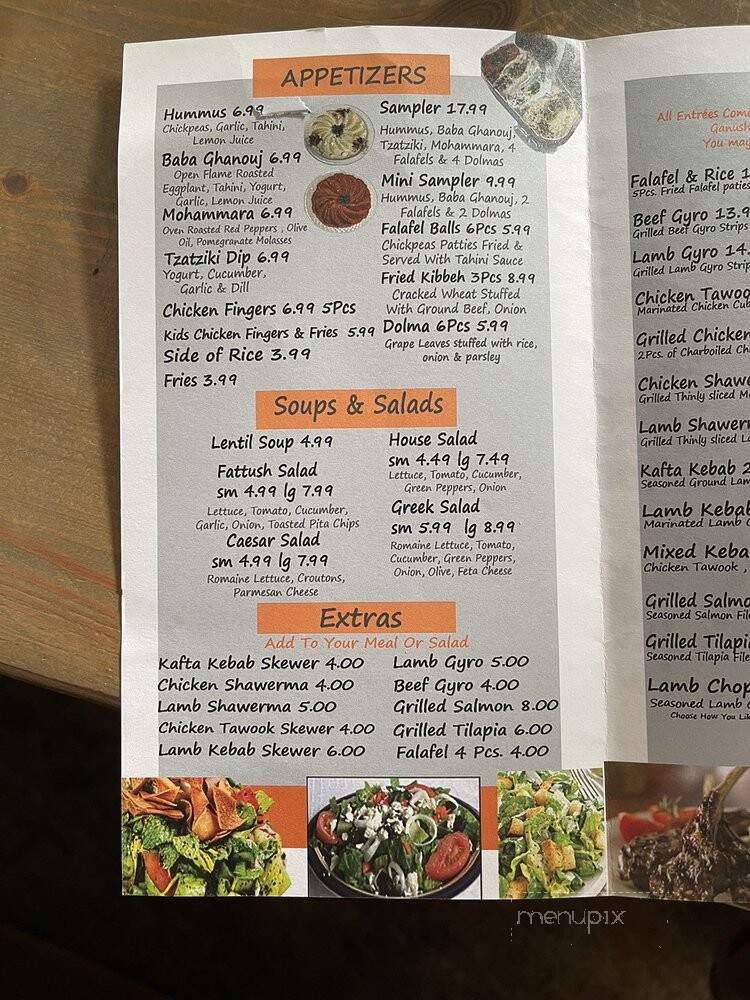 APPETIZERS
Hummus 6.99
Chickpeas, Garlic, Tahini,
Lemon Juice
Baba Ghanouj 6.99
Open Flame Roasted
Eggplant, Tahini, Yogurt,
Garlic, Lemon Juice
Mohammara 6.99
Oven Roasted Red Peppers , Olive
Oil, Pomegranate Molasses
Tzatziki Dip 6.99
Yogurt, Cucumber,
Garlic & Dill
Chicken Fingers 6.99 5Pcs
Kids Chicken Fingers & Fries 5.99
Side of Rice 3.99
Fries 3.99
Sampler 17.99
Hummus, Baba Ghanouj,
Tzatziki, Mohammara, 4
Falafels & 4 Dolmas
Mini Sampler 9.99
Hummus, Baba Ghanouj, 2
Falafels & 2 Dolmas
Falafel Balls 6Pcs 5.99
Chickpeas Patties Fried &
Served With Tahini Sauce
Fried Kibbeh 3Pcs 8.99
Cracked Wheat Stuffed
With Ground Beef, Onion
Dolma 6Pcs 5.99
Grape Leaves stuffed with rice,
onion & parsley
Soups & Salads
Lentil Soup 4.99
Fattush Salad
sm 4.99 lg 7.99
Lettuce, Tomato, Cucumber,
Garlic, Onion, Toasted Pita Chips
Caesar Salad
sm 4.99 lg 7.99
Romaine Lettuce, Croutons,
Parmesan Cheese
House Salad
sm 4.49 lg 7.49
Lettuce, Tomato, Cucumber,
Green Peppers, Onion
Greek Salad
sm 5.99 lg 8.99
Romaine Lettuce, Tomato,
Cucumber, Green Peppers,
Onion, Olive, Feta Cheese
Extras
Add To Your Meal Or Salad
Kafta Kebab Skewer 4.00
Chicken Shawerma 4.00
Lamb Shawerma 5.00
Chicken Tawook Skewer 4.00
Lamb Kebab Skewer 6.00
Lamb Gyro 5.00
Beef Gyro 4.00
Grilled Salmon 8.00
Grilled Tilapia 6.00
Falafel 4 Pcs. 4.00
All Entrées Come
Ganush
You may
Falafel & Rice 1
5Pcs. Fried Falafel patties
Beef Gyro 13.9
Grilled Beef Gyro Strips
Lamb Gyro 14.
Grilled Lamb Gyro Strip
Chicken Tawoo
Marinated Chicken Cub
Grilled Chicken
2Pcs. of Charboiled Ch
Chicken Shawe
Grilled Thinly sliced M
Lamb Shawerm
Grilled Thinly sliced La
Kafta Kebab 2
Seasoned Ground Lam
Lamb Kebab
Marinated Lamb C
Mixed Keba
Chicken Tawook ,
Grilled Salmo
Seasoned Salmon File
Grilled Tilapi
Seasoned Tilapia File
Lamb Chop
Seasoned Lamb
Choose How You Lik
menupix